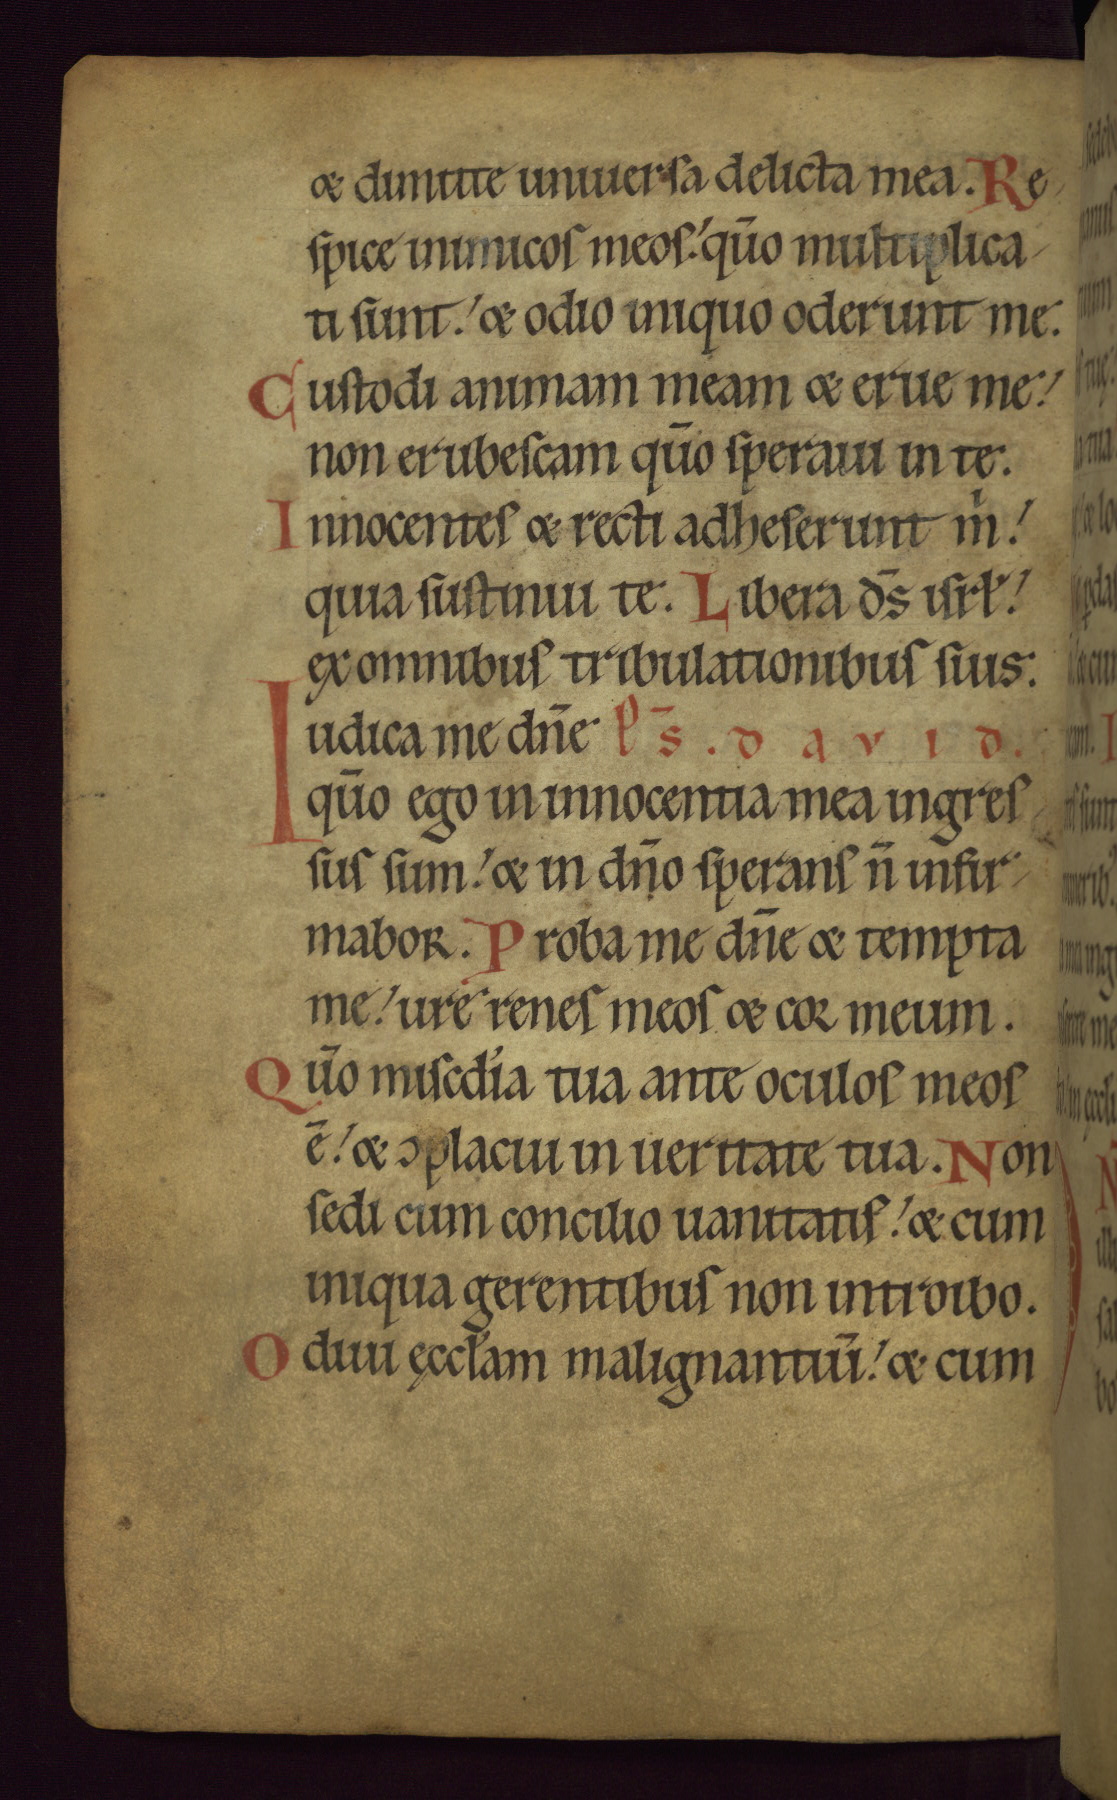 & dimitte uniuersa delicta mea. Re
spice inimicos meos: qūo multiplica
ti sunt: & odio iniquo oderunt me.
Custodi animam meam & erue me:
non erubescam qūo speraui in te.
Innocentes & recti adheserunt m̄:
quia sustinui te. Libera d̄s isrl:
ex omnibus tribulationibus suis.
Iudica me dn̄e ps̄. dauid.
qūo ego in innocentia mea ingres
sus sum: & in dn̄o sperans n̄ infir
mabor. Proba me dn̄e & tempta
me: ure renes meos & cor meum.
Qūo miscdia tua ante oculos meos
ē: & ↄplacui in ueritate tua. Non
sedi cum concilio uanitatis: & cum
iniqua gerentibus non introibo.
Odiui ęccłam malignantiū: & cum